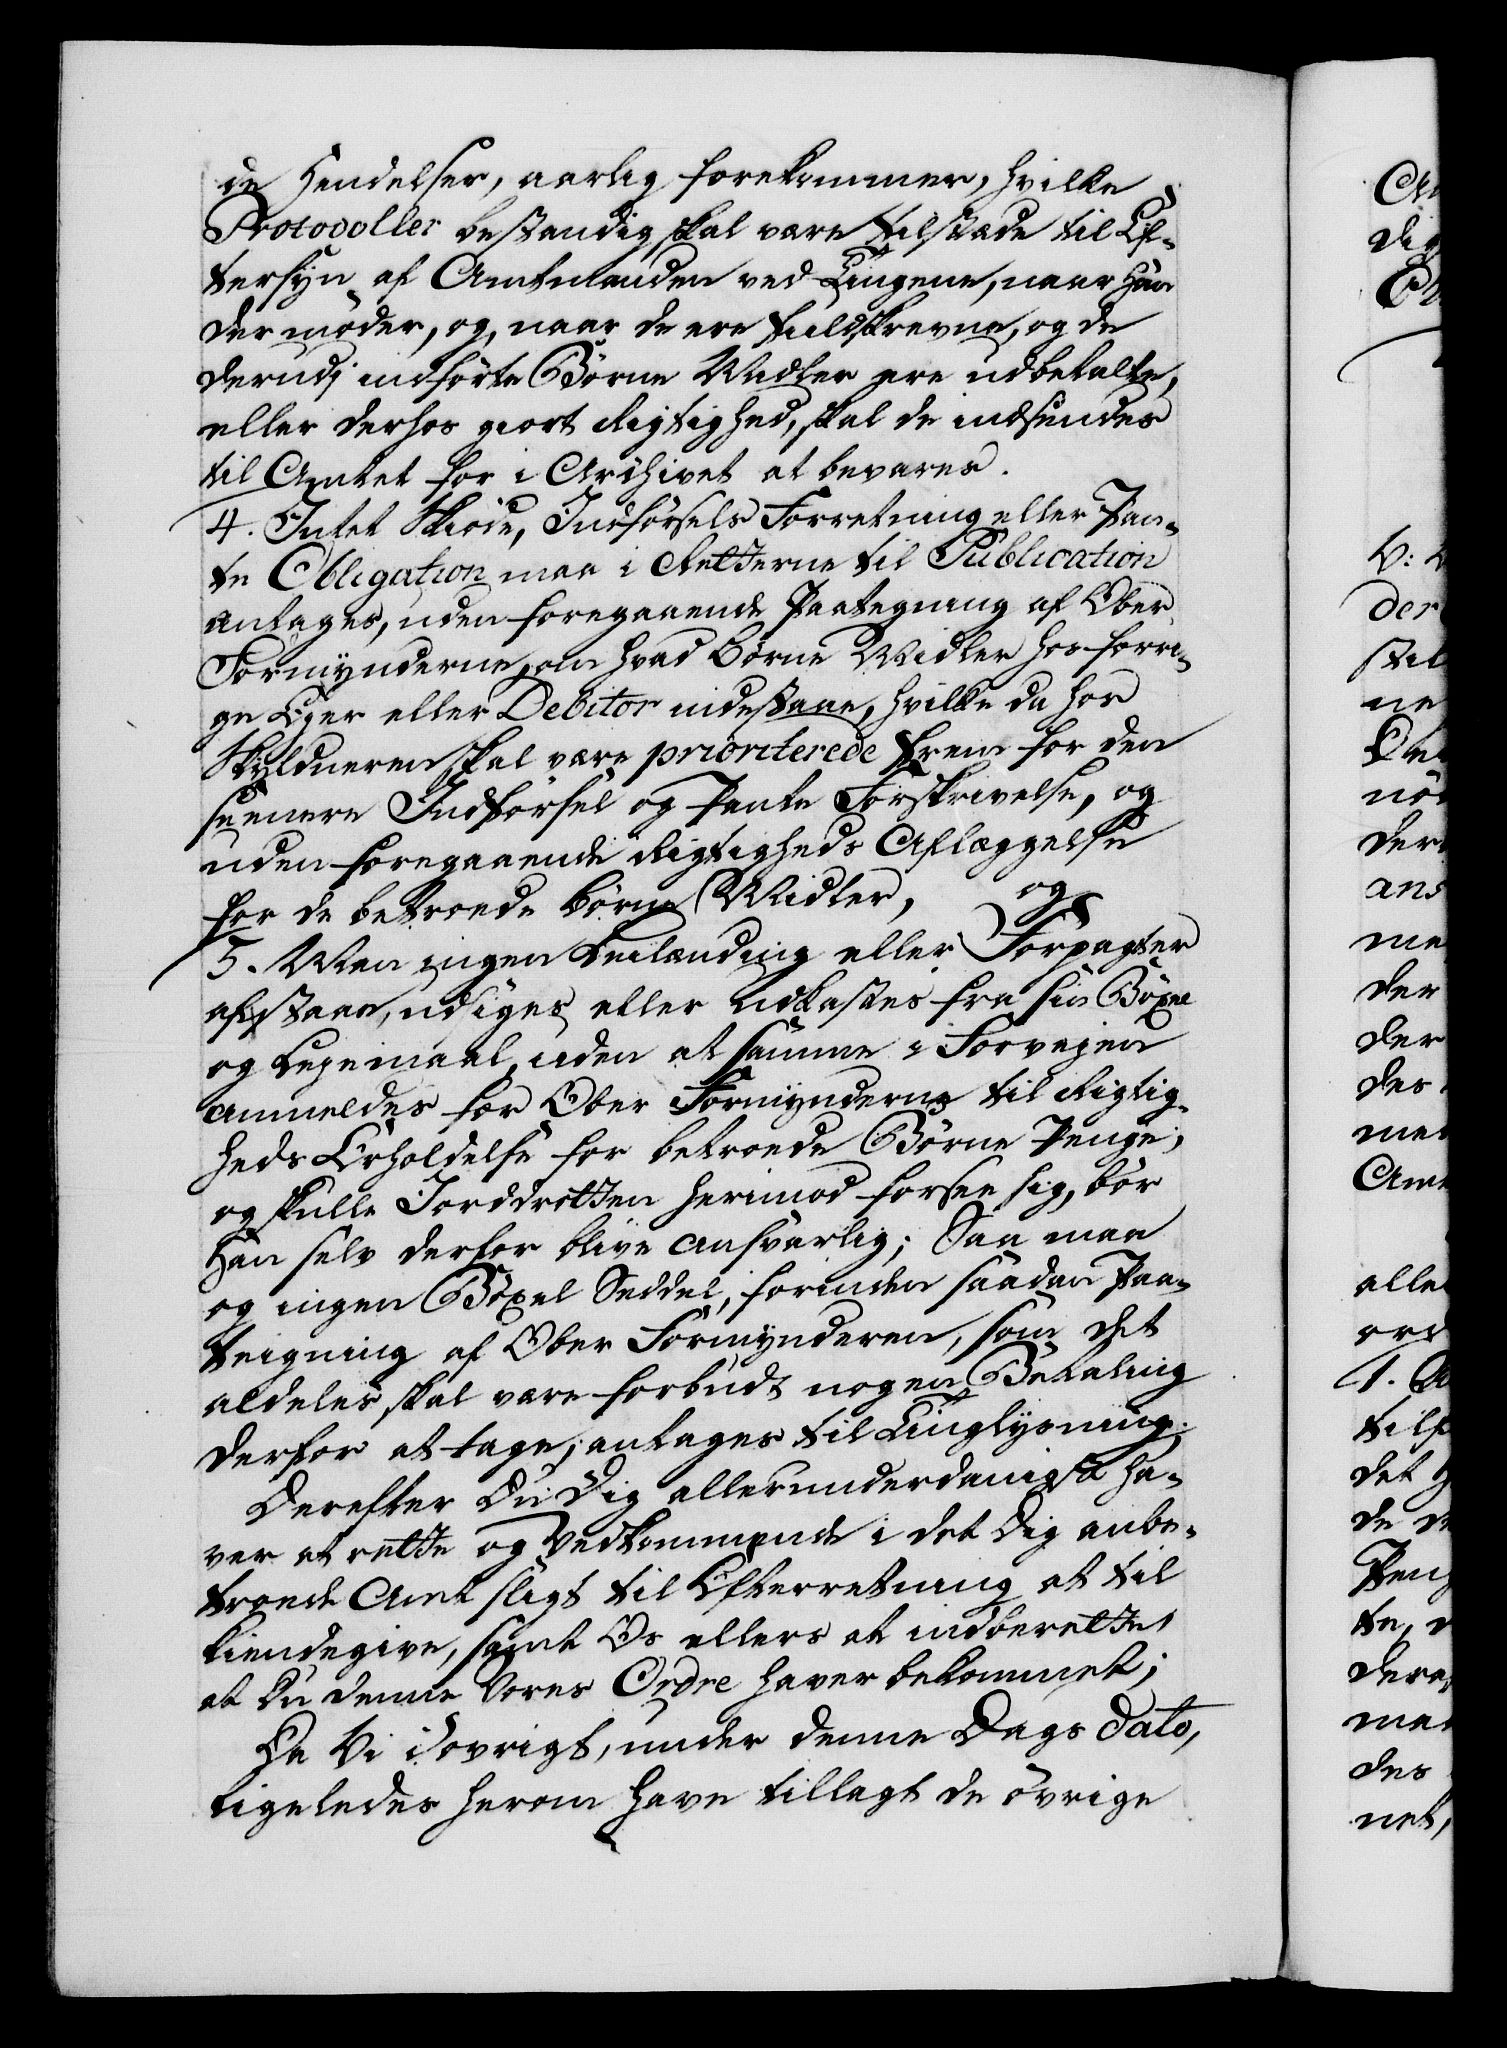 de Hendelser, aarlig forekommer, hvilke
Protocoller bestandig skal være tilstæde til Ef-
tersyn af Amtmanden ved Tingene, naar han
der møder, og, naar de ere fuldskrevne, og de
derudj indførte Børne Midler ere udbetalte,
eller derfor giort Rigtighed, skal de indsendes
til Amtet for i Archivet at bevares.
4. Intet Skiøde, Indførsels Forretning eller Pan-
te Obligation maa i Retterne til Publication
antages, uden foregaaende Paategning af Ober
Formynderne, om hvad Børne Midler hos forri-
ge Ejer eller Debitor indestaae, hvilke da hos
Skyldneren skal være prioriterede frem for den
seenere Indførsel og Pante Forskrivelse, og
uden foregaaende Rigtigheds Aflæggelse
for de betroede Børne Midler, og
5. Maa ingen Leilænding eller Forpagter
afstaae, udsiges eller udkastes fra sin Böxel
og Leyemaal, uden at samme i Forvejen
anmeldes for Ober Formynderne til Rigtig-
heds Erholdelse for betroede Børne Penge;
og skulle Jorddrotten herimod forsee sig, bör
han selv derfor blive ansvarlig; Saa maa
og ingen Böxel Seddel, forinden saadan Paa-
teigning af Ober Formynderen, som det
aldeles skal være forbudt nogen Betaling
derfor at tage, antages til Tinglysning.
Derefter Du Dig allerunderdanigst ha-
ver at rette og Vedkommende i det Dig anbe-
troede Amt sligt til Efterretning at til
kiendegive, samt Os ellers at indberette
at Du denne Vores Ordre haver bekommet;
Da Vi iövrigt, under denne Dags Dato,
ligeledes herom have tillagt de övrige